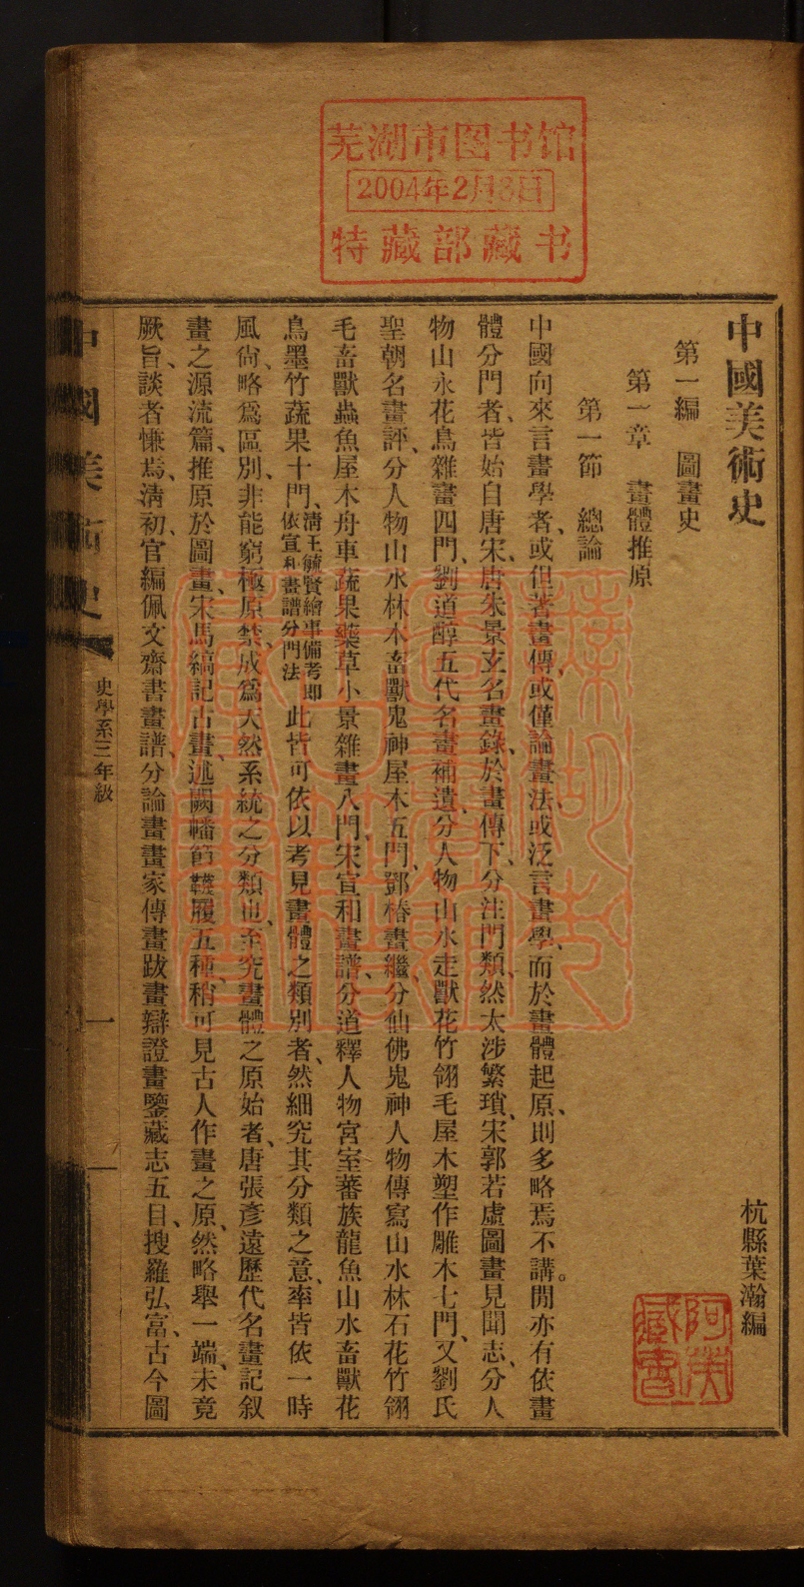 芜湖市图书馆
2004年2月3日
特藏部藏书
中國美術史
杭縣葉瀚編
第一編　圖畫史
第一章　畫體推原
第一節　總論
中國向來言畫學者、或但著畫傳、或僅論畫法、或泛言畫學、而於畫體起原、則多略焉不講。閒亦有依畫
體分門者、皆始自唐宋、唐朱景玄名畫錄、於畫傳下、分注門類、然太涉繁瑣、宋郭若虛圖畫見聞志、分人
物山水花鳥雜畫四門、劉道醇五代名畫補遺、分人物山水走獸花竹翎毛屋木塑作雕木七門、又劉氏
聖朝名畫評、分人物山水林木畜獸鬼神屋木五門、鄧椿畫繼、分仙佛鬼神人物傳寫山水林石花竹翎
毛畜獸蟲魚屋木舟車蔬果藥草小景雜畫八門、宋宣和畫譜、分道釋人物宮室蕃族龍魚山水畜獸花
鳥墨竹蔬果十門、清王毓賢繪事備考即依宣和畫譜分門法此皆可依以考見畫體之類別者、然細究其分類之意、率皆依一時
風尙、略爲區別、非能窮極原禁、成爲天然系統之分類也、至究畫體之原始者、唐張彥遠歷代名畫記叙
畫之源流篇、推原於圖畫、宋馬縞記古畫、述闕幡節韈履五種、稍可見古人作畫之原、然略舉一端、未竟
厥旨、談者慊焉、清初、官編佩文齋書畫譜、分論畫畫家傳畫跋畫辯證畫鑒藏志五目、搜羅弘富、古今圖
中國美術史
史學系三年級
一